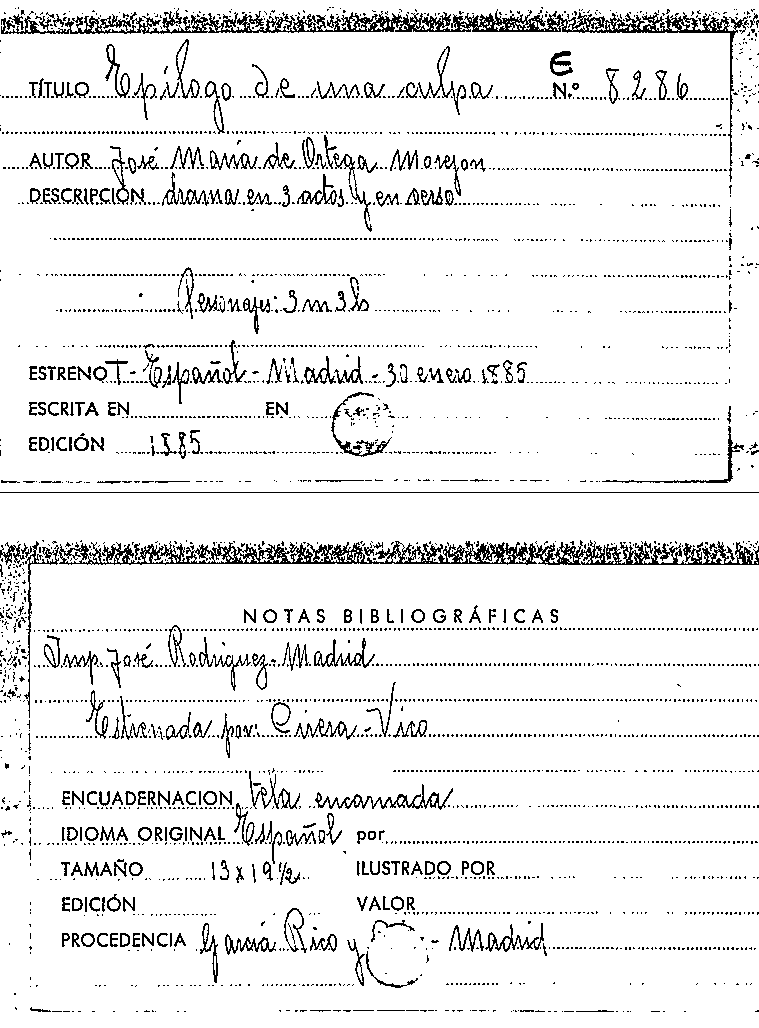 TÍTULO Epílogo de una culpa E N.º 8286
AUTOR José María de Ortega Morejon
DESCRIPCIÓN drama en 3 actos y en verso
Personajes: 3 m 3 h
ESTRENO T - Español - Madrid - 30 enero 1885
ESCRITA EN EN
EDICIÓN 1885
NOTAS BIBLIOGRÁFICAS
Imp. José Rodriguez - Madrid
Estrenada por: Cirera - Vico
ENCUADERNACION tela encarnada
IDIOMA ORIGINAL Español por
TAMAÑO 13 x 19 ½ ILUSTRADO POR
EDICIÓN VALOR
PROCEDENCIA García Rico y - Madrid